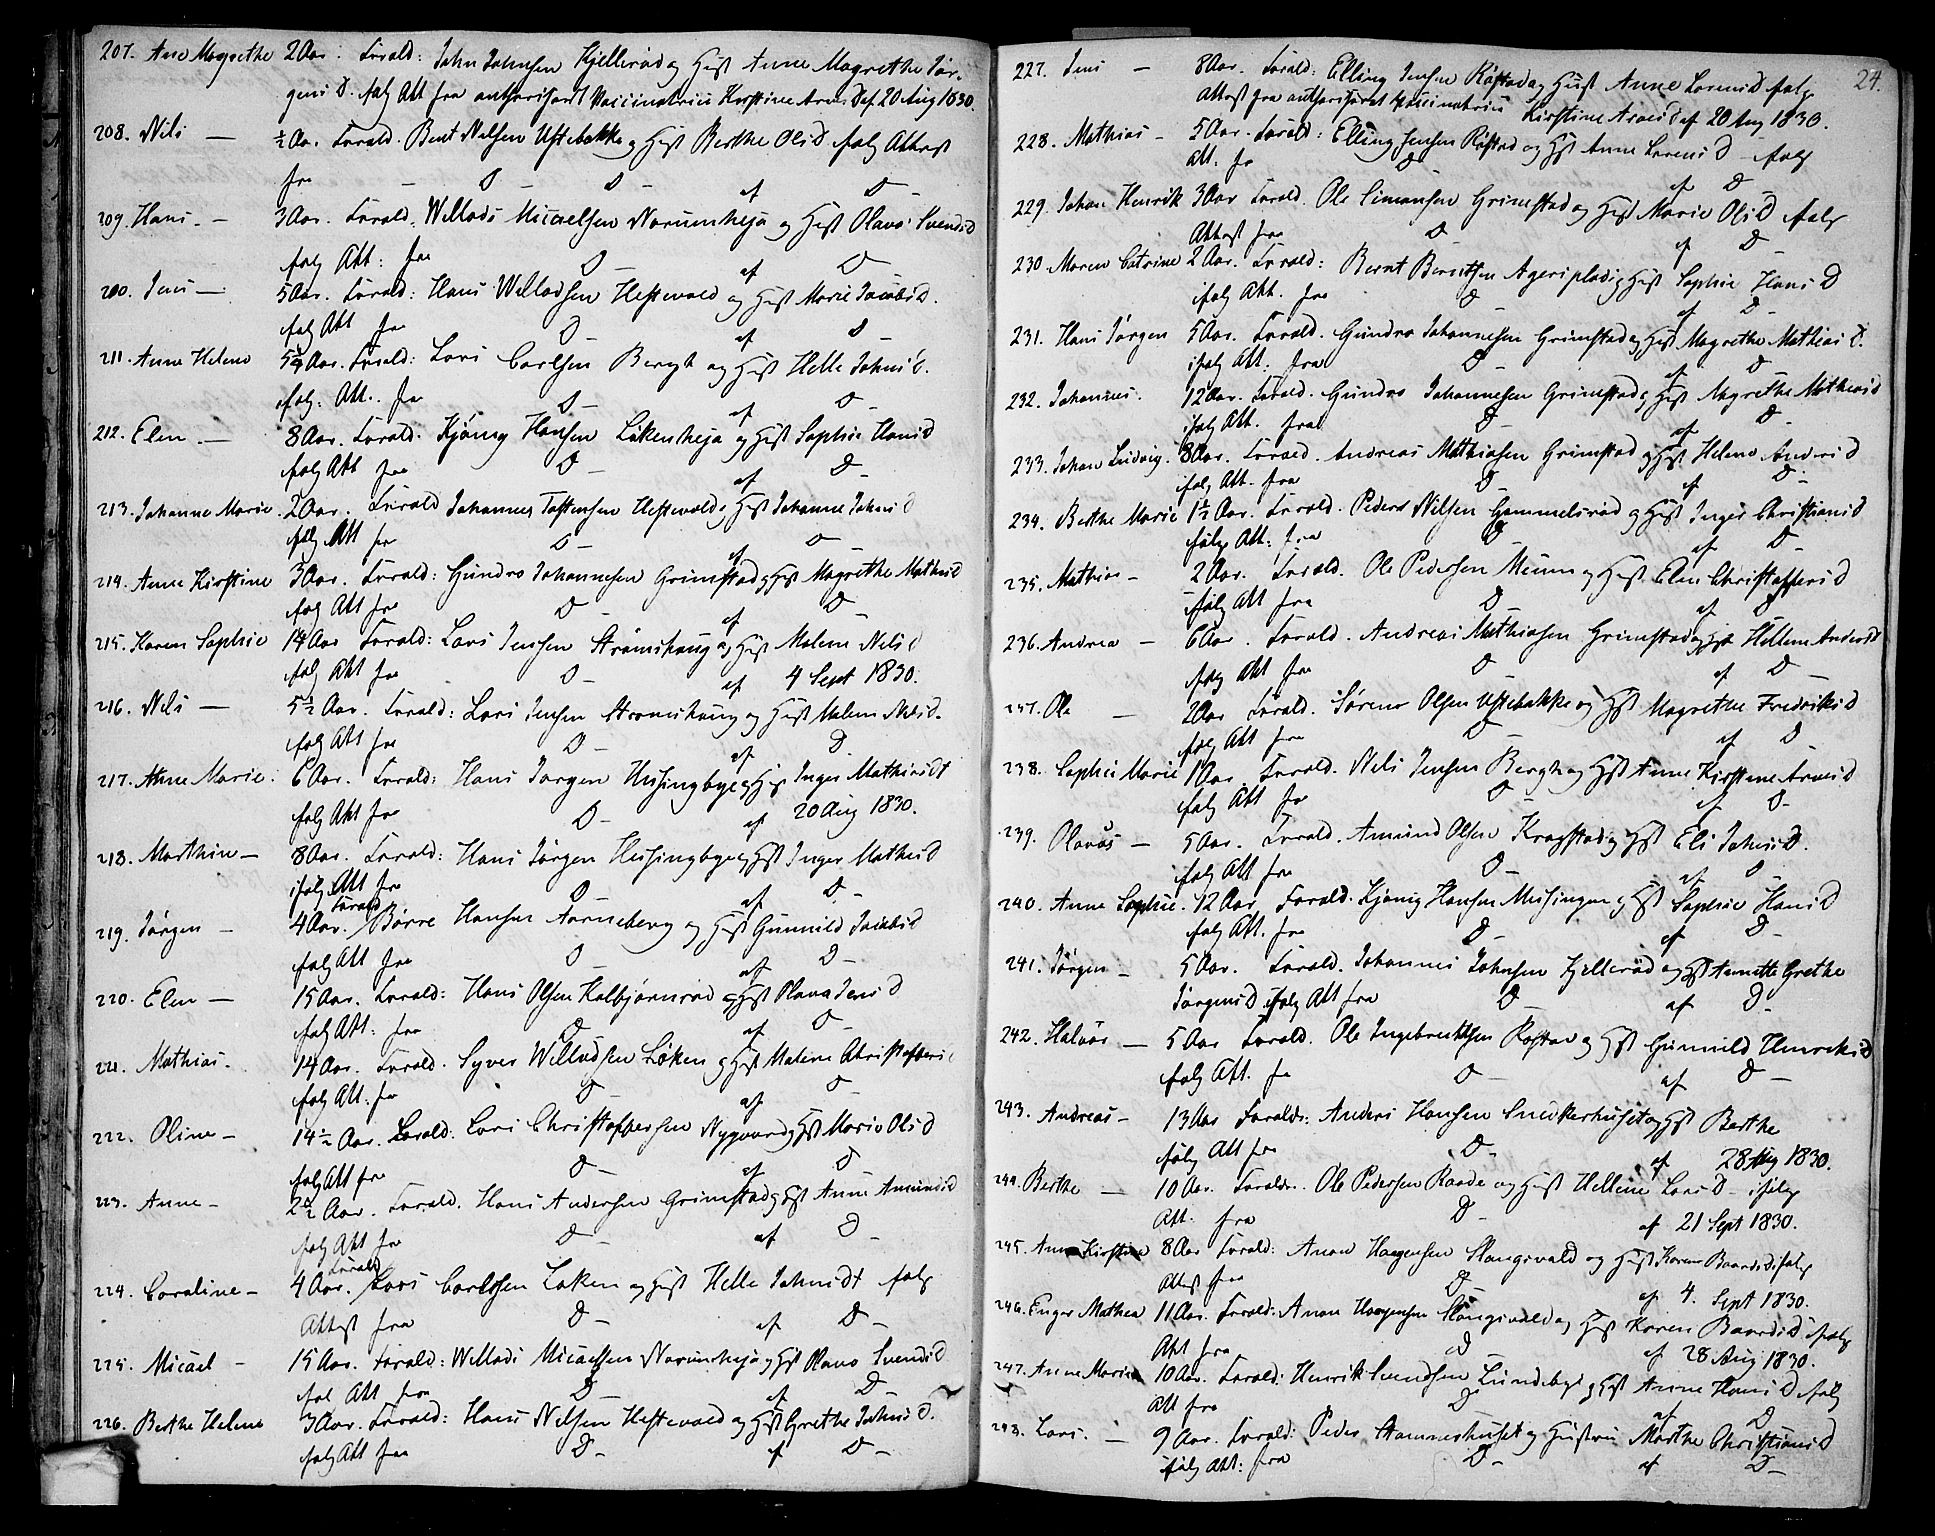 207. Ane Magrethe 2 Aar. Forald: John Johnsen Kjellerød og Hust Anne Magrethe Jør-
gens D. følg Att fra authoriseret Vaccinatrice Kirstine Arnes D af 20 Aug 1830.
208. Nils — ½ Aar. Forald. Bent Nilsen Ustebakke og Hust Berthe Ols D følg Attest
fra — D — D — af D —
209. Hans — 3 Aar. Forald. Willads Micaelsen Norumheja og Hust Olava Svends D
følg Att: fra D — af D
200. Jens — 5 Aar. Forald: Hans Willadsen Hestevold og Hust Marie Jacobs D.
følg Att fra D af D —
211. Anne Helene 5½ Aar. Forald: Lars Carlsen Bergh og Hust Helle Johns D.
følg: Att. fra D — af D —
212. Elen — 8 Aar. Forald. Kjønig Hansen Løkenheja og Hust Sophie Hans D
følg Att fra D — af D —
213. Johanne Marie. 2 Aar. Forald Johannes Tostensen Hestevold og Hust Johanne Johns D
følg Att fra D — af D —
214. Anne Kirstine 3 Aar. Forald: Gundro Johannesen Grimstad og Hust Magrethe Mathias D
følg Att fra D — af D —
215. Karen Sophie 14 Aar Forald: Lars Jensen Strømshaug og Hust Malene Nils D
følg Att fra D — af 4 Sept 1830.
216. Nils — 5½ Aar. Forald: Lars Jensen Strømshaug og Hust Malene Nils D.
følg Att fra D — af D.
217. Anne Marie. 6 Aar. Forald: Hans Jørgen Husingbye og Hust Inger Mathisdt
følg Att fra D — af 20 Aug 1830.
218. Marthin — 8 Aar. Forald: Hans Jørgen Husingbye og Hst Inger Mathis D
ifølg Att fra D — af D —
219. Jørgen — 4 Aar. Forald Børre Hansen Torneberg og Hust Gunnild Jacobs D
følg Att fra D af D —
220. Elen — 15 Aar. Forald: Hans Olsen Kolbjørnrød og Hst Olava Jens D
følg Att: fra D af D —
221. Mathias. 14 Aar. Forald. Syver Willadsen Løken og Hst Malene Christoffers
følg Att. fra D — af D
222. Oline — 14½ Aar. Forald. Lars Christoffersen Nygaard og Hst Marie Ols D
følg Att fra D — af D
223. Anne — 2½ Aar. Forald. Hans Andersen Grimstad og Hst Anne Amunds D
følg Att fra D — af D —
224. Coraline — 4 Aar. Forald Lars Carlsen Løken og Hust Helle Johnsdt følg
Attest fra D — af D —
225. Micael — 15 Aar. Forald: Willads Micaelsen Norumheja og Hst Olava Svends D
føl Att fra D — af D —
226. Berthe Helene 3 Aar. Forald: Hans Nilsen Hestevold og Hst Grethe Johns D.
følg Att fra D — af D —
24.
227. Jens — 8 Aar. Forald: Elling Jensen Røstad og Hust Anne Lorens D følg
Attest fra authoriseret Vaccinatrice Kirstine Arnes D af 20 Aug 1830.
228. Mathias — 5 Aar. Forald: Elling Jensen Røstad og Hst Anne Lorens D — følg
Att. fr D af D
229. Johan Henrik 3 Aar Forald. Ole Simonsen Grimstad og Hust Marie Ols D følg
Attest fra D af D —
230 Maren Catrine 2 Aar. Forald: Bernt Berntsen og Hust Sophie Hans D
ifølg Att. fra D af D —
231. Hans Jørgen 5 Aar. Forald. Gundro Johannesen Grimstad og Hust Magrethe Mathias D.
ifølg Att: fra D — af D
232. Johannes. 12 Aar. Forald. Gundro Johannesen Grimstad og Hust Magrethe Mathias D
ifølg Att. fra D — af D —
233. Johan Ludvig. 8 Aar. Forald. Andreas Mathiasen Grimstad og Hust Helene Anders D
følg Att. fra D af D —
234. Berthe Marie 1½ Aar. Forald. Peder Nilsen Gammelsrød og Hust Inger Christians D
følg Att: fra D af D —
235. Mathias — 2 Aar. Forald. Ole Pedersen Meum og Hust Elen Christoffers D
følg Att fra D af D —
236. Andrea — 6 Aar. Forald. Andreas Mathiasen Grimstad og Hst Hellene Andersdt
følg Att fra D af D —
237. Ole — 2 Aar Forald. Søren Olsen Ustebakke og Hst Magrethe Fredriks D
følg Att fra D — af D —
238. Sophie Marie 1 Aar Forald. Nils Jensen Bergh og Hst Anne Kirstine Arnes D
følg Att fra D — af D —
239. Olavus — 5 Aar. Forald. Amund Olsen Kragstad og Hst Eli Johns D.
følg Att fra D — af D —
240. Anne Sophie. 12 Aar Forald. Kjønig Hansen Musingen og Hst Sophie Hans D
følg Att. fra D — af D —
241. Jørgen — 5 Aar. Forald. Johannes Johnsen Kjellerød og Hst Annette Grethe
Jørgens D ifølg Att fra D — af D —
242. Halvor — 5 Aar Forald. Ole Ingebrecthsen Røstad og Hst Gunnild Henriks D
følg Att. fr D — af D —
243. Andreas — 13 Aar Foraldr: Anders Hansen Snedkerhuset og Hst Berthe
følg Att fra D — af 28 Aug 1830.
244. Berthe — 10 Aar. Foraldr. Ole Pedersen Raade og Hust Hellene Lars D — ifølg
Att. fra D — af 21 Sept 1830.
245. Anne Kirstine 8 Aar Forald: Anon Haagensen Slangsvold og Hust Karen Baards D ifølg
Attest fra D — af 4. Sept 1830.
246. Enger Mathea 11 Aar. Forald: Anon Haagensen Slangsvold og Hust Karen Baards D følg
Att fra D af 28 Aug 1830.
247. Anne Marie 10 Aar. Forald: Henrik Svendsen Lundebye og Hst Anne Hans D følg
Att fra D — af D
248. Lars. — 9 Aar. Forald: Peder Hammershuset og Hustrue Marthe Christians D
ifølg Att: fra D — af D —